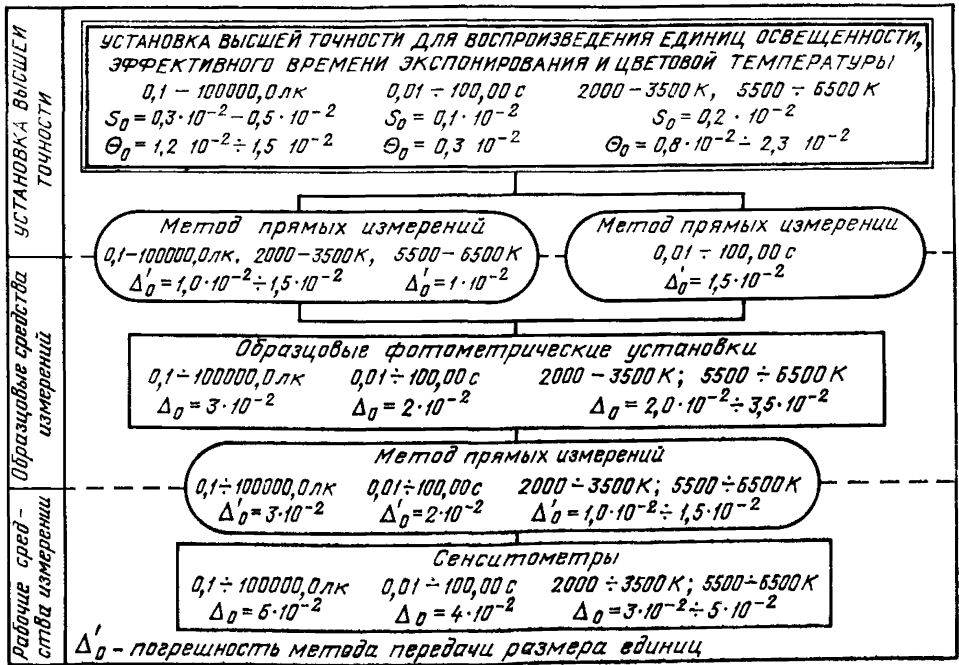 УСТАНОВКА ВЫСШЕЙ ТОЧНОСТИ
УСТАНОВКА ВЫСШЕЙ ТОЧНОСТИ ДЛЯ ВОСПРОИЗВЕДЕНИЯ ЕДИНИЦ ОСВЕЩЕННОСТИ,
ЭФФЕКТИВНОГО ВРЕМЕНИ ЭКСПОНИРОВАНИЯ И ЦВЕТОВОЙ ТЕМПЕРАТУРЫ
0,1 – 100000,0 лк 0,01 ÷ 100,00 с 2000 – 3500 К, 5500 ÷ 6500 К
S₀ = 0,3·10⁻² – 0,5·10⁻² S₀ = 0,1·10⁻² S₀ = 0,2·10⁻²
Θ₀ = 1,2 10⁻² ÷ 1,5 10⁻² Θ₀ = 0,3 10⁻² Θ₀ = 0,8·10⁻² ÷ 2,3 10⁻²
Метод прямых измерений
0,1–100000,0 лк, 2000–3500 К, 5500–6500 К
Δ'₀ = 1,0·10⁻² ÷ 1,5·10⁻² Δ'₀ = 1·10⁻²
Метод прямых измерении
0,01 ÷ 100,00 с
Δ'₀ = 1,5·10⁻²
Образцовые средства измерений
Образцовые фотометрические установки
0,1 ÷ 100000,0 лк 0,01 ÷ 100,00 с 2000 – 3500 К; 5500 ÷ 6500 К
Δ₀ = 3·10⁻² Δ₀ = 2·10⁻² Δ₀ = 2,0·10⁻² ÷ 3,5·10⁻²
Метод прямых измерений
0,1 ÷ 100000,0 лк 0,01 ÷ 100,00 с 2000 ÷ 3500 К; 5500 ÷ 6500 К
Δ'₀ = 3·10⁻² Δ'₀ = 2·10⁻² Δ'₀ = 1,0·10⁻² ÷ 1,5·10⁻²
Рабочие сред-
ства измерении
Сенситометры
0,1 ÷ 100000,0 лк 0,01 ÷ 100,00 с 2000 ÷ 3500 К; 5500 ÷ 6500 К
Δ₀ = 6·10⁻² Δ₀ = 4·10⁻² Δ₀ = 3·10⁻² ÷ 5·10⁻²
Δ'₀ – погрешность метода передачи размера единиц